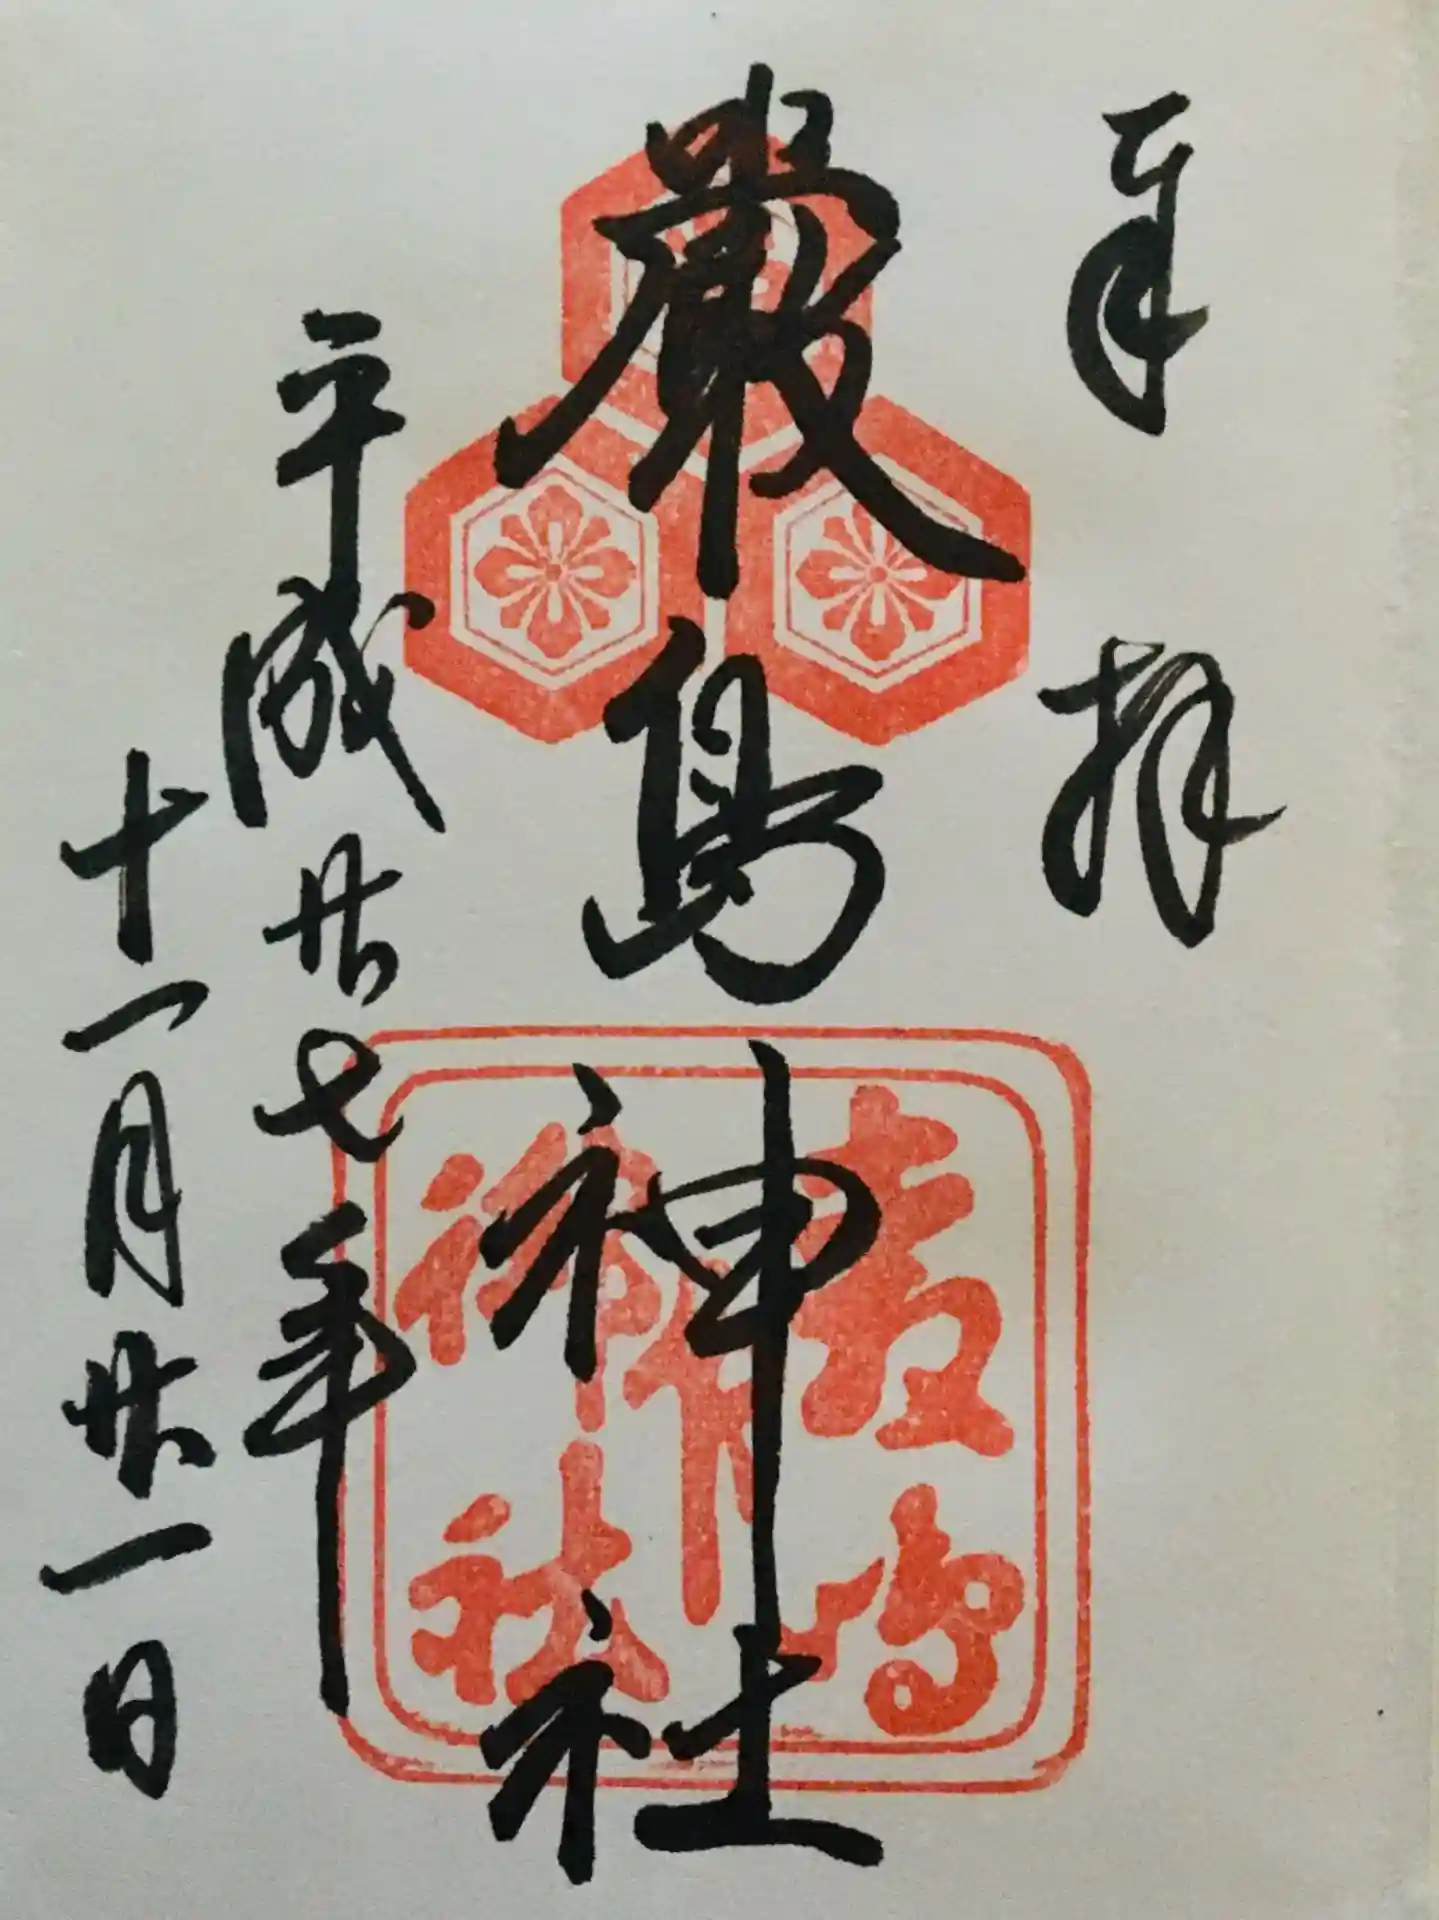 奉拝
嚴島神社
平成廿七年
十一月廿一日